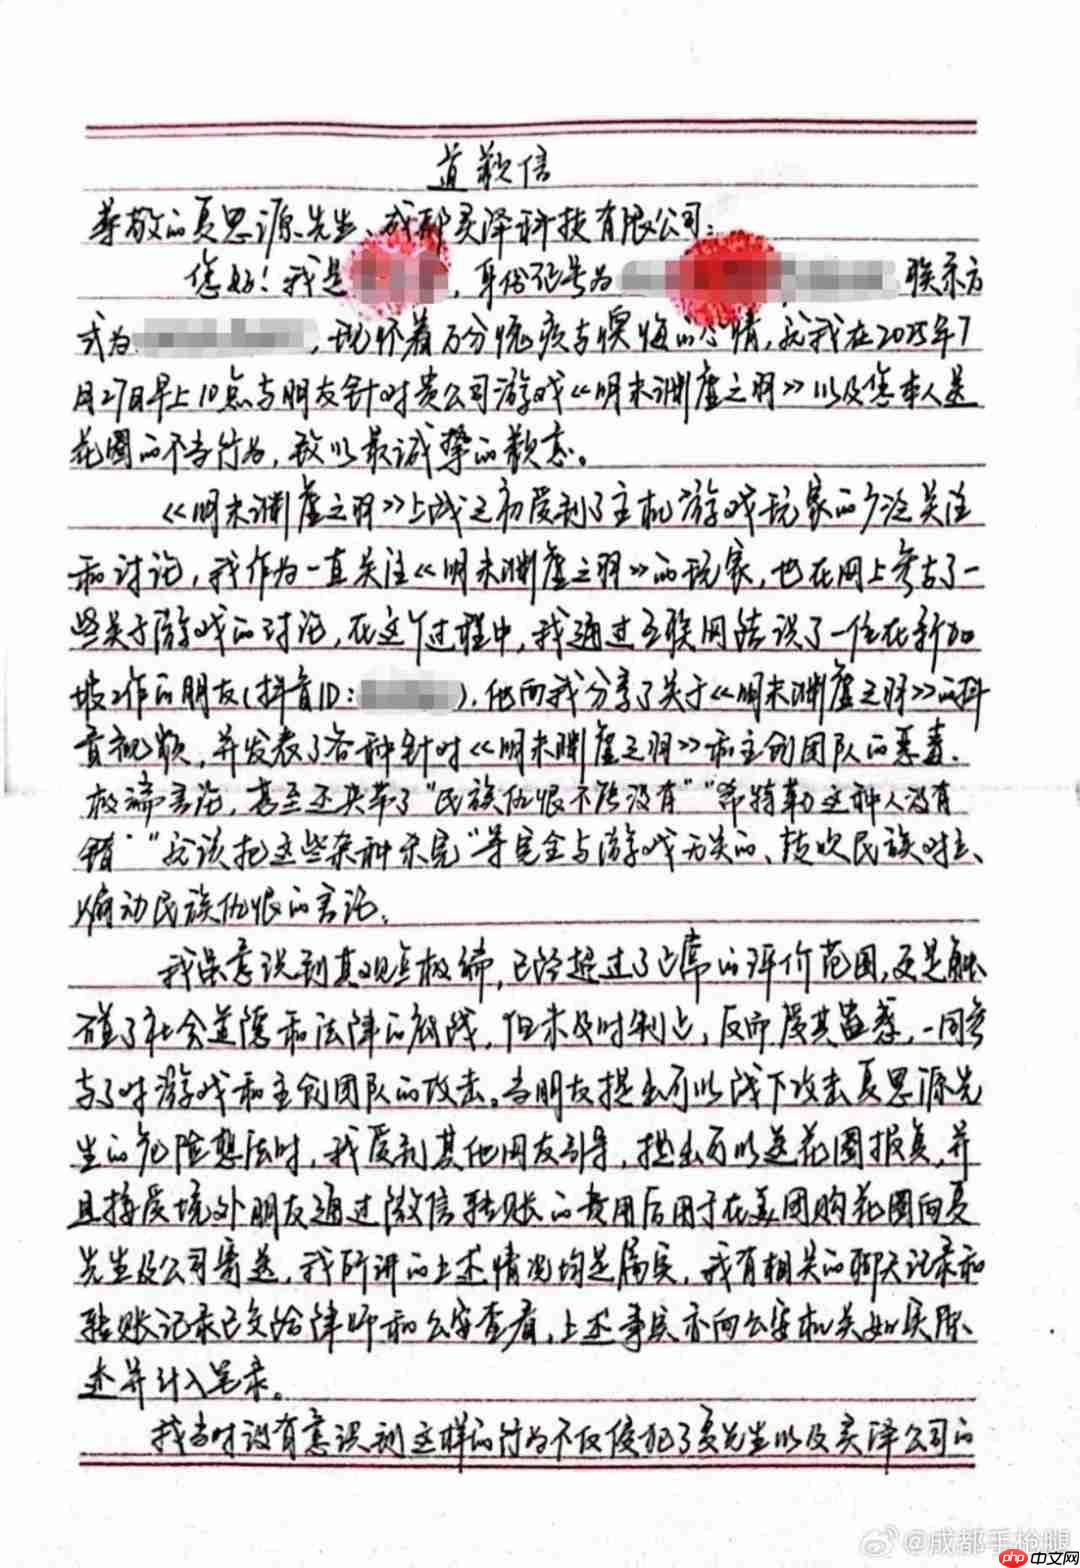 道歉信
尊敬的夏思源先生、成都灵泽科技有限公司:
您好!我是,身份证号为 联系方
式为,现怀着万分愧疚与懊悔的心情,就我在2025年7
月27日早上10点与朋友针对贵公司游戏《明末渊虚之羽》以及您本人送
花圈的不当行为,致以最诚挚的歉意。
《明末渊虚之羽》上线之初受到了主机游戏玩家的广泛关注
和讨论,我作为一直关注《明末渊虚之羽》的玩家,也在网上参与了一
些关于游戏的讨论,在这个过程中,我通过互联网结识了一位在新加
坡工作的朋友(抖音ID:),他向我分享了关于《明末渊虚之羽》的抖
音视频,并发表了各种针对《明末渊虚之羽》和主创团队的恶毒、
极端言论,甚至还夹带了“民族仇恨不能没有”“希特勒这种人没有
错”“就该把这些杂种杀完”等完全与游戏无关的、鼓吹民族对立、
煽动民族仇恨的言论。
我虽意识到其观点极端,已经超过了正常的评价范围,更是触
碰了社会道德和法律的底线,但未及时制止,反而受其蛊惑,一同参
与了对游戏和主创团队的攻击。当朋友提出可以线下攻击夏思源先
生的危险想法时,我受到其他网友引导,提出可以送花圈报复,并
且接受境外朋友通过微信转账的费用后用于在美团购花圈向夏
先生及公司寄送,我所讲的上述情况均是属实,我有相关的聊天记录和
转账记录已交给律师和公安查看,上述事实亦向公安机关如实陈
述并计入笔录。
我当时没有意识到这样的行为不仅侵犯了夏先生以及灵泽公司的
@成都手枪腿
php中文网